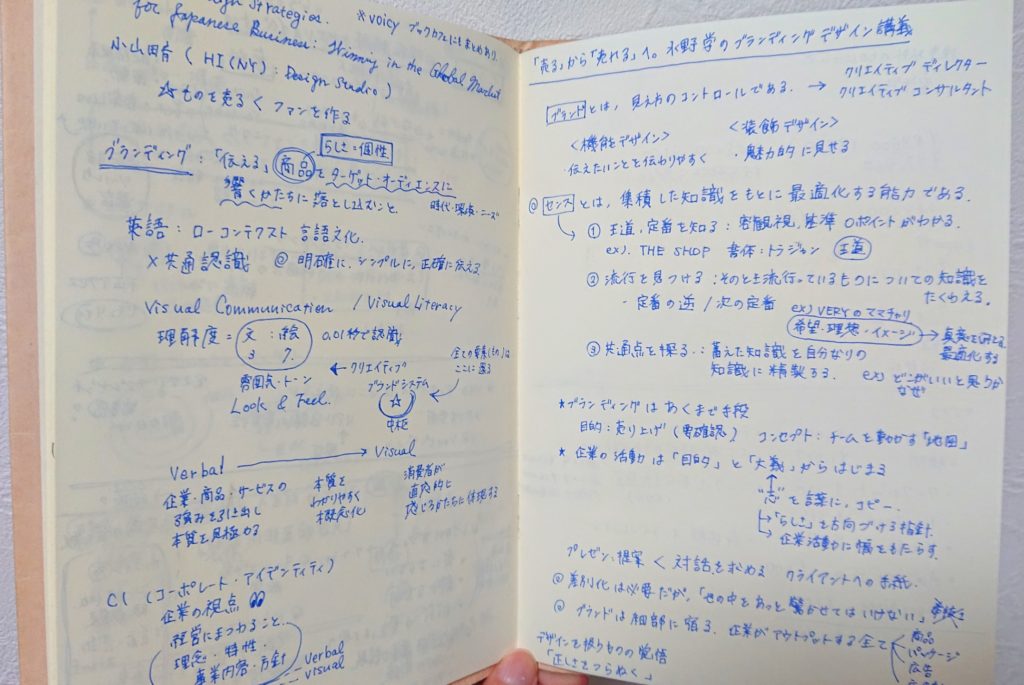 Strategies. ※voicy ブックカフェにもまとめあり
for Japanese Business: Winning in the Global Market
小山田育 ( HI(NY): Design Studio )
☆ものを売る < ファンを作る
らしさ=個性
ブランディング:「伝える」商品をターゲット・オーディエンスに
響くかたちに落とし込むこと
時代・環境・ニーズ
英語:ローコンテクスト 言語文化
×共通認識 @ 明確に、シンプルに、正確に伝える
Visual Communication / Visual Literacy
理解度= 文:絵 0.01秒で認識
3 7.
雰囲気・トーン ← クリエイティブ
Look & Feel.
ブランドシステム
☆
中枢
全ての要素(もの)は
ここに還る
Verbal → Visual
企業・商品・サービスの
強みを引き出し
本質を見極める
本質を
わかりやすく
概念化
消費者が
直感的に
感じるかたちに体現する
CI (コーポレート・アイデンティティ)
企業の視点
経営にまつわること
理念・特性
事業内容・方針
verbal
visual
「売る」から「売れる」へ。水野学のブランディングデザイン講義
ブランドとは、見え方のコントロールである. → クリエイティブ ディレクター
クリエイティブ コンサルタント
<機能デザイン>
伝えたいことを伝わりやすく
<装飾デザイン>
・魅力的に見せる
@ センスとは、集積した知識をもとに最適化する能力である.
① 王道、定番を知る:客観視、基準 0ポイントがわかる.
ex). THE SHOP 書体:トラジャン 王道
② 流行を見つける:そのとき流行っているものについての知識を
たくわえる.
- 定番の逆 / 次の定番
ex) VERYのママチャリ
希望・理想・イメージ →
最適化する
③ 共通点を探る.:蓄えた知識を自分なりの
知識に精製する.
ex) どこがいいと思うか
なぜ
*ブランディングはあくまで手段
目的:売り上げ(要確認) コンセプト:チームを動かす「地図」
* 企業の活動は「目的」と「大義」からはじまる
"志"を言葉に。コピー.
→「らしさ」を方向づける指針.
→ 企業活動に幅をもたらす.
プレゼン、提案 < 対話を求める クライアントへの手紙.
@ 差別化は必要だが、「世の中をあっと驚かせてはいけない」
@ ブランドは細部に宿る. 企業がアウトプットする全て
商品
パッケージ
広告
デザインを扱うもつの覚悟
「正しさをつらぬく」